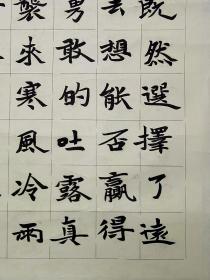 既然選擇了遠
去想能否贏得
勇敢的吐露真
襲來寒風冷雨